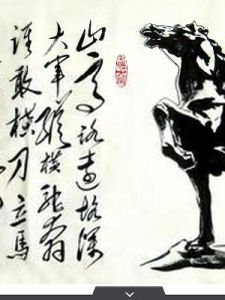 山高路遠坑深
大軍縱橫馳奔
誰敢橫刀立馬